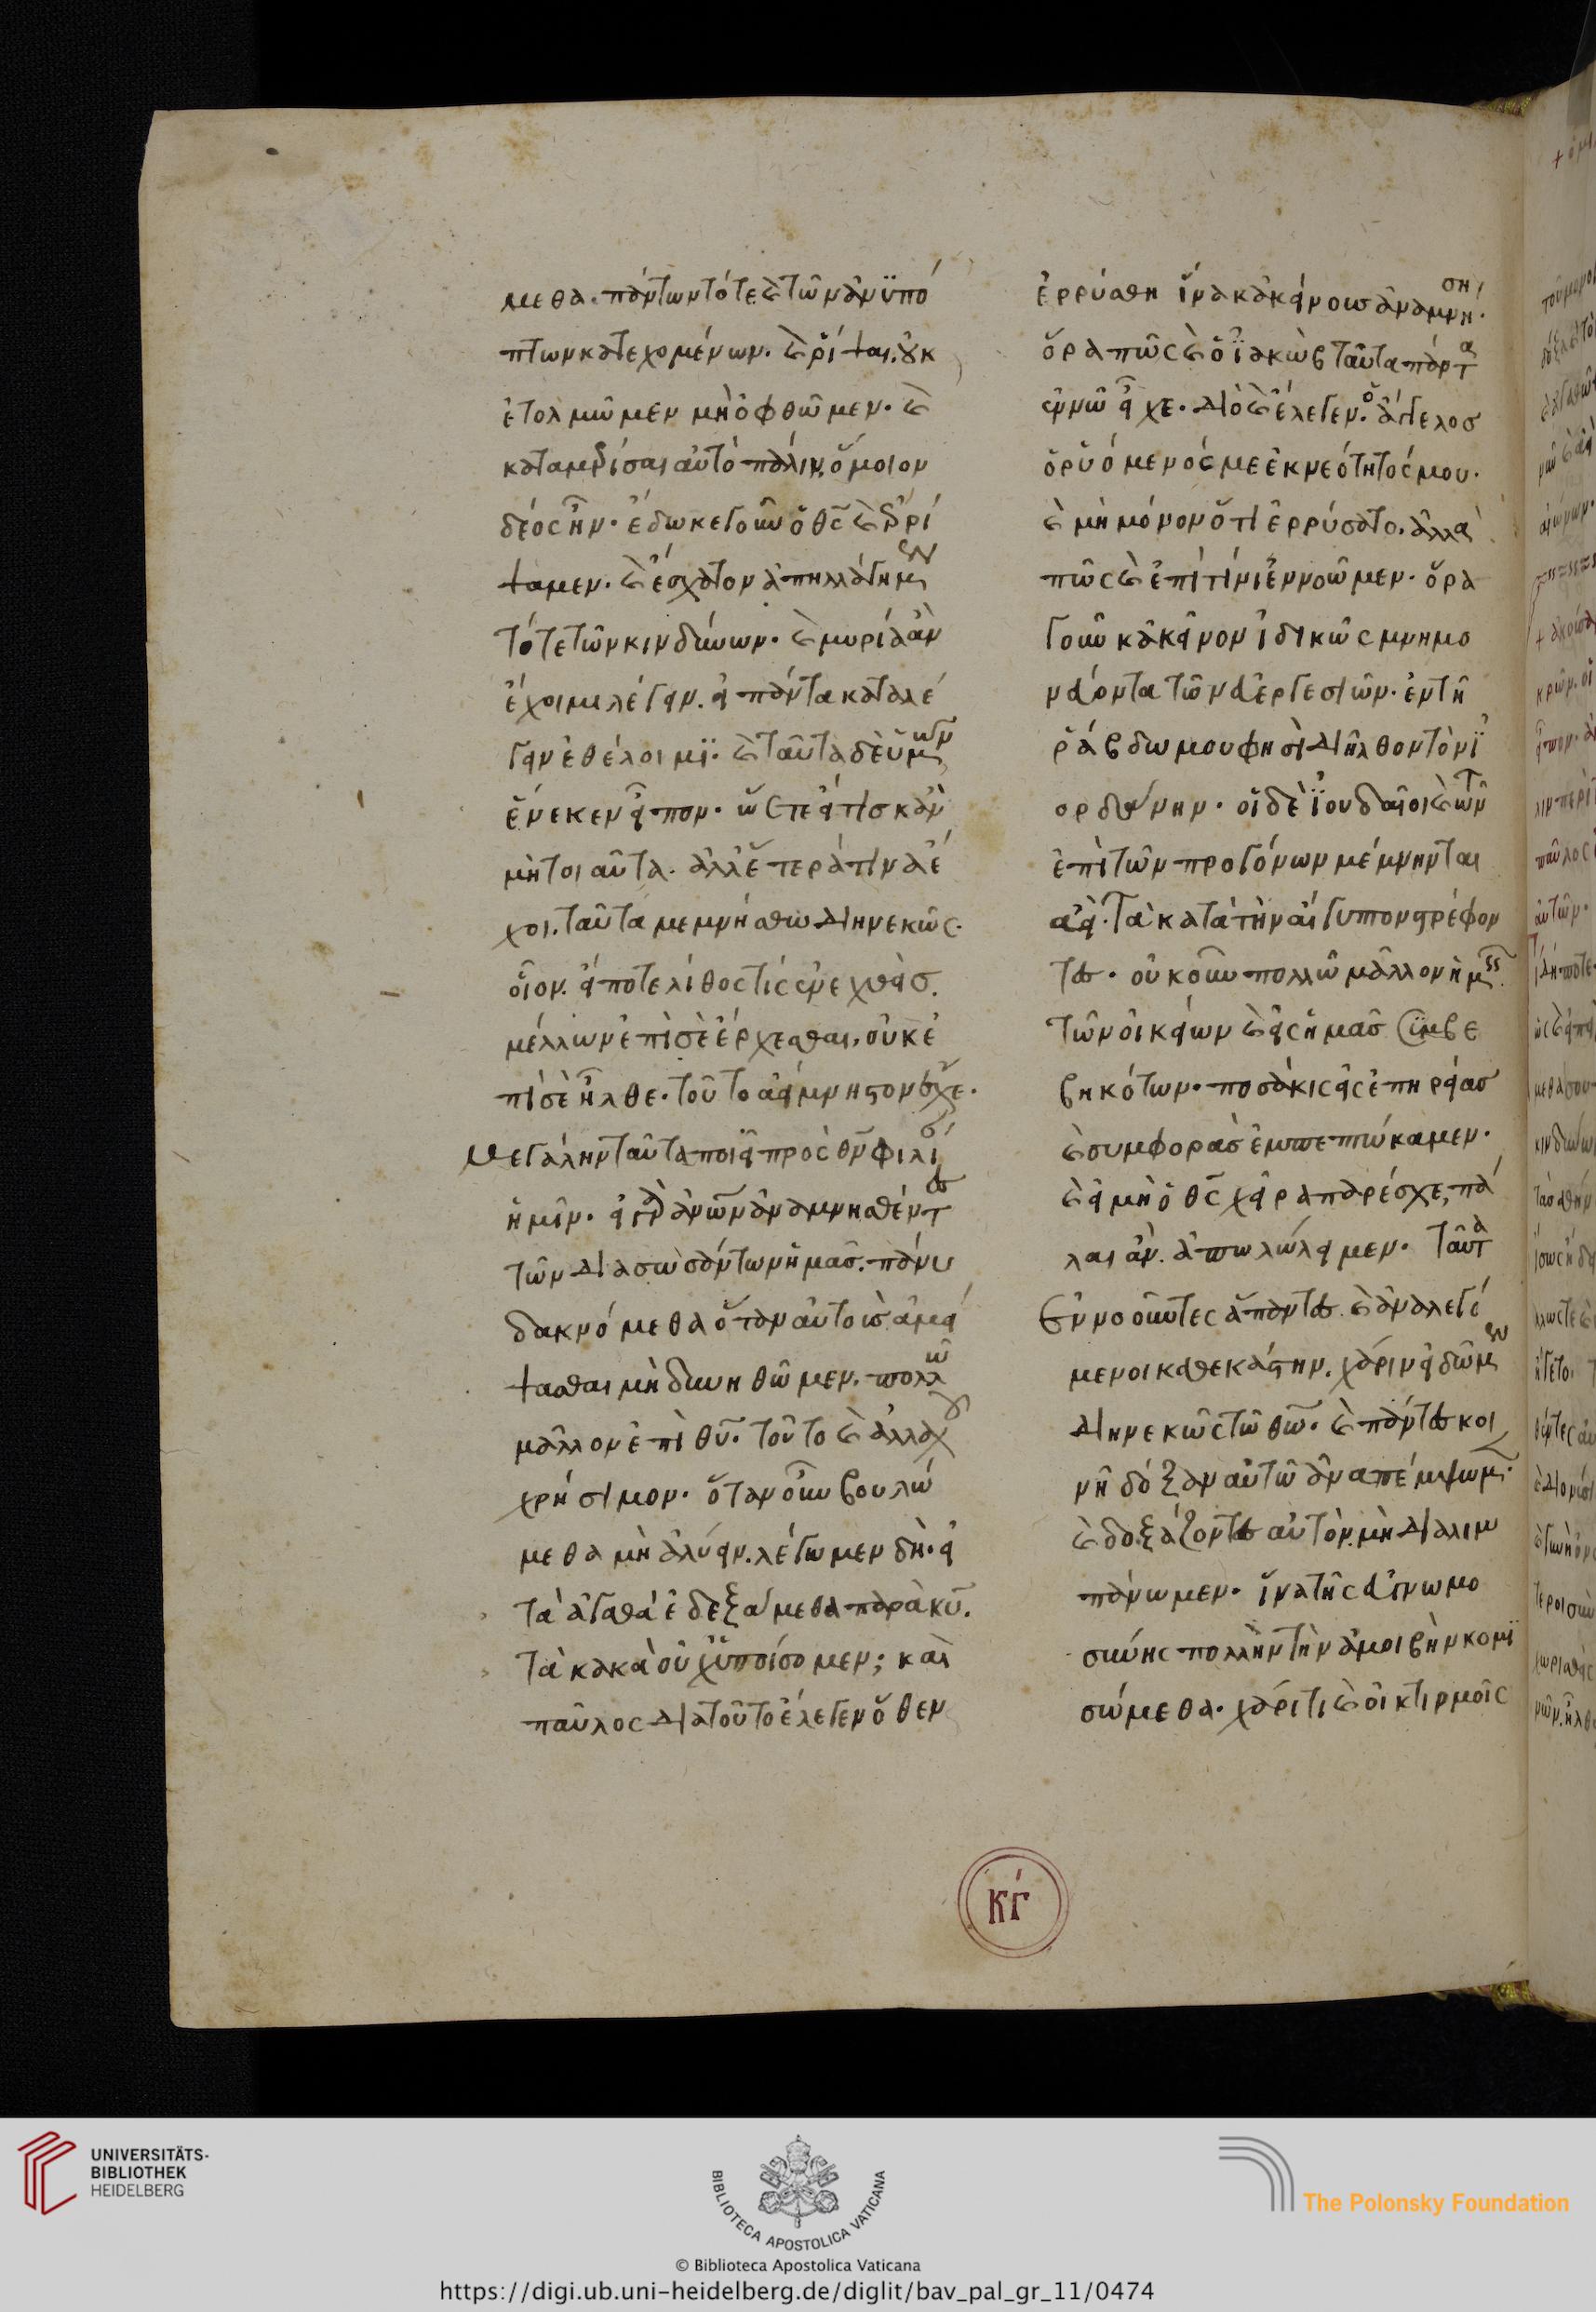 μεθα. πάντων τότε καὶ τῶν ἀνϋπό
πτων κατεχομένων. καὶ ῥίψαι οὐκ
ἐτολμῶμεν μὴ ὀφθῶμεν. καὶ
καταμερίσαι αὐτὸ πάλιν, ὅμοιον
δέος ἦν. ἔδωκε γοῦν ὁ θς καὶ ἐρρί
ψαμεν. καὶ ἔσχατον ἀπηλλάγημεν
τότε τῶν κινδύνων. καὶ μυρία ἂν
ἔχοιμι λέγειν. εἰ πάντα καταλέ
γειν ἐθέλοιμϊ. καὶ ταῦτα δὲ ὑμῶν
ἕνεκεν εἶπον. ὥστε εἴ τίσ κἂν
μὴ τοιαῦτα. ἀλλ' ἕτερά τινα ἔ
χοι. ταῦτα μεμνήσθω διηνεκῶς.
οἷον. εἴ ποτε λίθος τίς ἐνεχθεὶσ.
μέλλων ἐπὶ σὲ ἔρχεσθαι, οὐκ ἐ
πὶ σὲ ἦλθε. τοῦτο ἀείμνηστον ἔχε.
Μεγάλην ταῦτα ποιεῖ πρὸς θν φιλί
ἡμῖν. εἰ γὰρ ἀνων ἀναμνησθέντες
τῶν διασωσάντων ἡμᾶσ. πάνυ
δακνόμεθα ὅταν αὐτοὺσ ἀμεί
ψασθαι μὴ δυνηθῶμεν. πολλῶ
μᾶλλον ἐπὶ θυ. τοῦτο καὶ ἀλλαχοῦ
χρήσιμον. ὅταν οὖν βουλώ
μεθα μὴ ἀλύειν. λέγωμεν δὴ. εἰ
τὰ ἀγαθὰ ἐδεξάμεθα παρὰ κυ.
τὰ κακὰ οὐχ ὑποίσομεν; καὶ
παῦλος διὰ τοῦτο ἔλεγεν ὅθεν
ἐρρύσθη ἵνα κἀκείνουσ ἀναμνήσῃ.
ὅρα πῶς καὶ ὁ ϊακὼβ ταῦτα πάντα
ἐν νῶ εἶχε. διὸ καὶ ἔλεγεν. ὁ ἄγγελοσ
ὁ ῥυόμενός με ἐκ νεότητός μου.
καὶ μὴ μόνον ὅτι ἐρρύσατο. ἀλλὰ
πῶς καὶ ἐπὶ τίνι ἐννοῶμεν. ὅρα
γοῦν κἀκεῖνον ἰδικῶς μνημο
νεύοντα τῶν εὐεργεσιῶν. ἐν τῆ
ῥάβδω μου φησὶ διῆλθον τὸν ϊ
ορδάνην. οἱ δὲ ϊουδαῖοι καὶ τῶν
ἐπὶ τῶν προγόνων μέμνηνται
ἀεὶ. τὰ κατὰ τὴν αἴγυπτον στρέφον
τες. οὐκοῦν πολλῶ μᾶλλον ἡμεῖς
τῶν οἰκείων καὶ εἰς ἡμᾶσ συμβε
βηκότων. ποσάκις εἰς ἐπηρείασ
καὶ συμφορὰσ ἐμπεπτώκαμεν.
καὶ εἰ μὴ ὁ θς χεῖρα παρέσχε, πά
λαι ἂν ἀπωλώλειμεν. ταῦτα
ἐννοοῦντες ἅπαντες. καὶ ἀναλεγό
μενοι καθεκάστην. χάριν εἰδῶμεν
διηνεκῶς τῶ θω. καὶ πάντες κοι
νῆ δόξαν αὐτῶ ἀναπέμψωμεν.
καὶ δοξάζοντες αὐτὸν. μὴ διαλιμ
πάνωμεν. ἵνα τῆς εὐγνωμο
σύνης πολλὴν τὴν ἀμοιβὴν κομϊ
σώμεθα. χάριτι καὶ οἰκτιρμοῖς
κγ
UNIVERSITÄTS-
BIBLIOTHEK
HEIDELBERG
BIBLIOTECA APOSTOLICA VATICANA
© Biblioteca Apostolica Vaticana
The Polonsky Foundation
https://digi.ub.uni-heidelberg.de/diglit/bav_pal_gr_11/0474